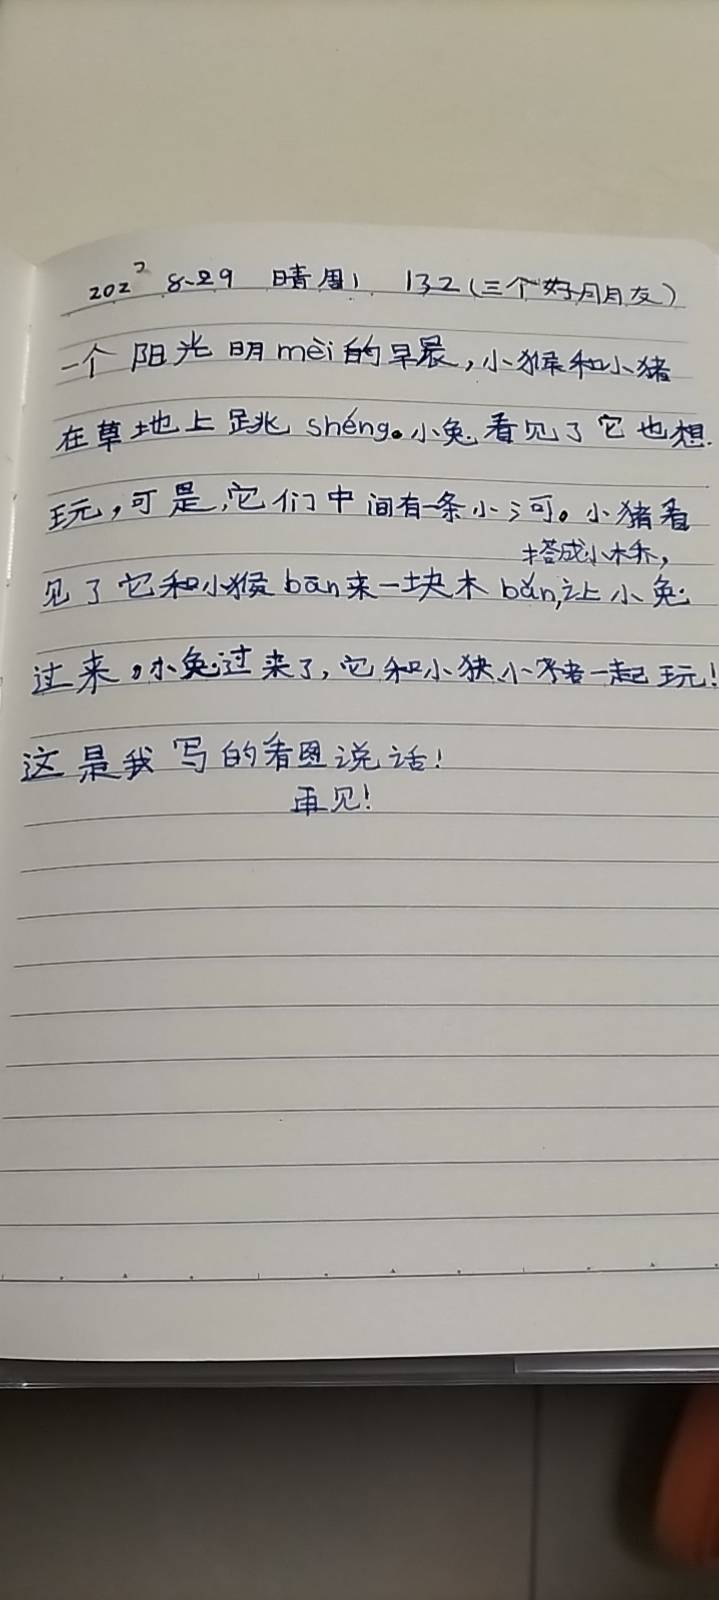 2022 8-29 晴周1 132(三个好朋友)
一个阳光明mèi的早晨,小猴和小猪
在草地上跳shéng。小兔看见了它也想
玩,可是,它们中间有一条小河。小猪看
搭成小木乔,
见了它和小猴bān来一块木bǎn,让小兔
过来,小兔过来了,它和小猴、小猪一起玩!
这是我写的看图说话!
再见!